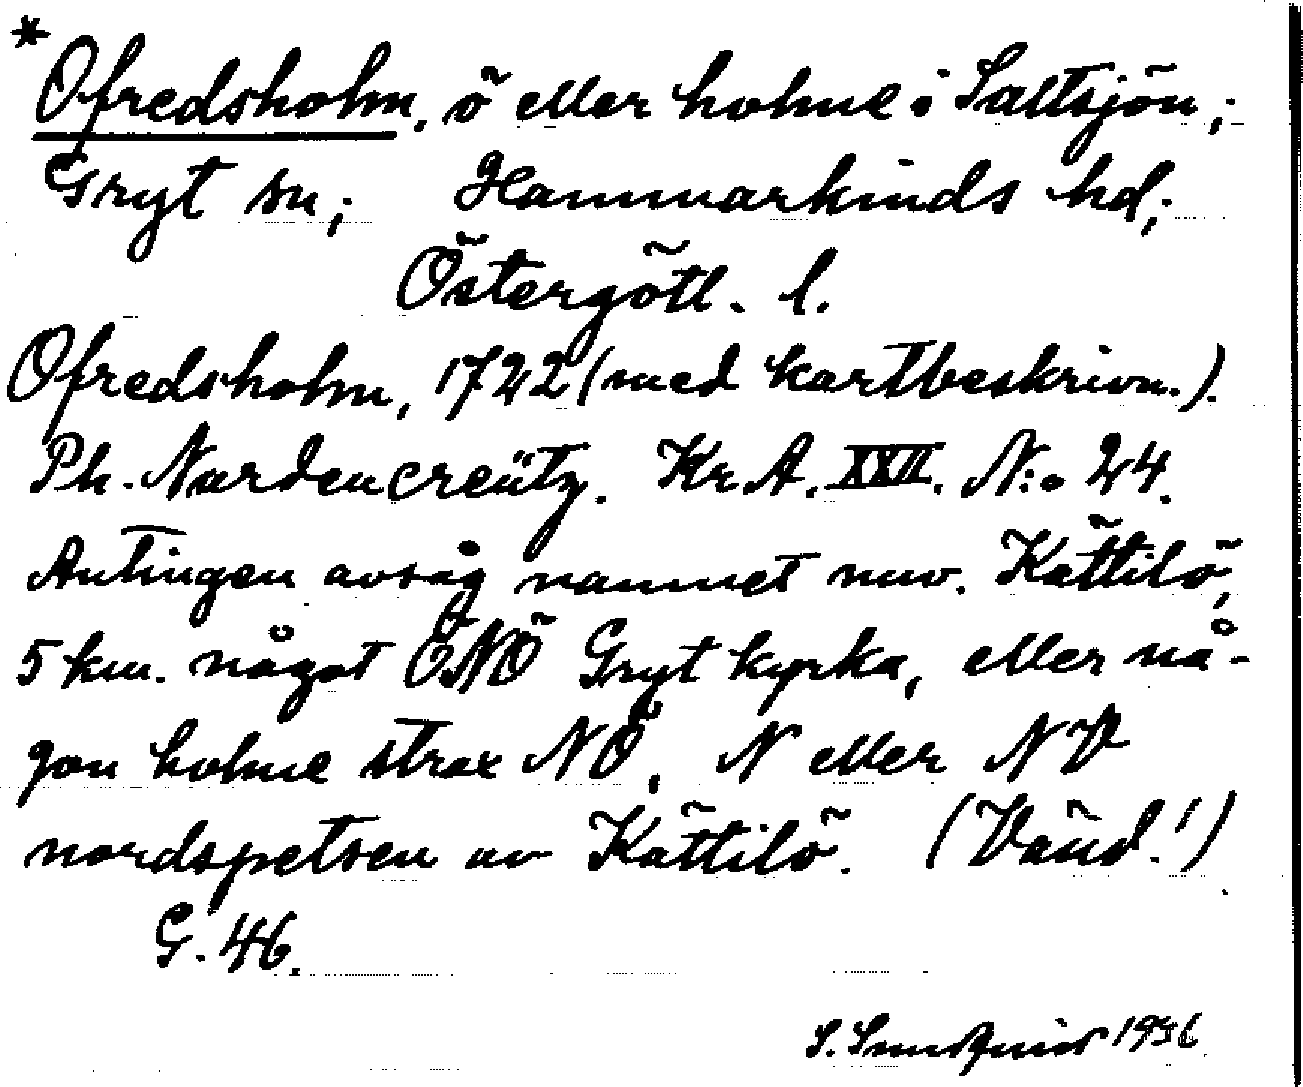 *Ofredsholm, ö eller holme i Saltsjön;
Gryt sn; Hammarkinds hd;
Östergötl. l.
Ofredsholm, 1722 (med kartbeskrivn.).
Ph. Nordencreütz. Kr. A. XXII. N:o 24.
Antingen avsåg namnet nuv. Kättilö,
5 km. något ÖNÖ Gryt kyrka, eller nå-
gon holme strax NÖ, N eller NV
nordspetsen av Kättilö. (Vänd!)
G. 46.
S. 1936